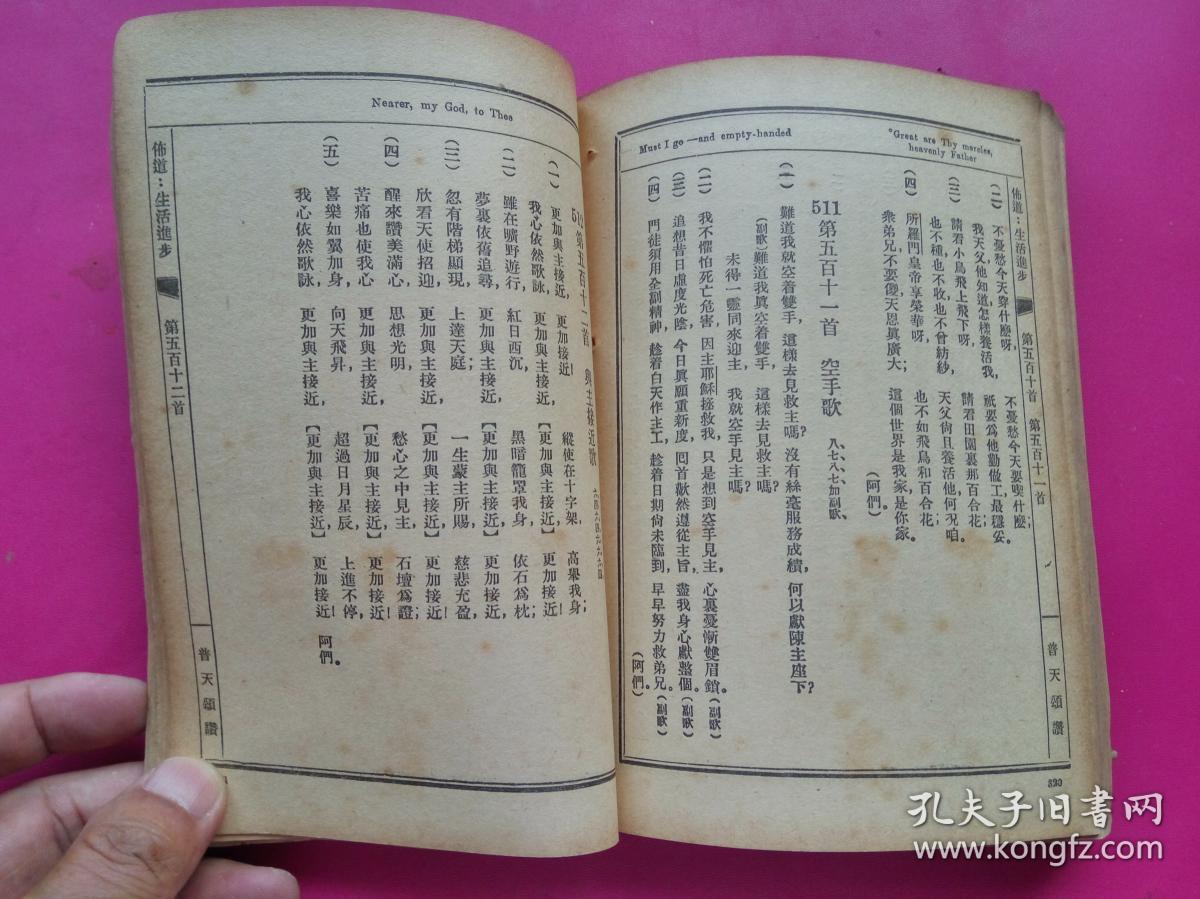 佈道：生活進步
第五百十首 第五百十一首
普天頌讚
*Great are Thy mercies,
heavenly Father
(二) 不憂愁今天穿什麼呀， 不憂愁今天要喫什麼；
我天父他知道怎樣養活我， 祇要爲他勤做工最穩妥。
(三) 請看小鳥飛上飛下呀， 請看田園裏那百合花；
也不種也不收也不曾紡紗， 天父尙且養活他何況咱。
(四) 所羅門皇帝享榮華呀， 也不如飛鳥和百合花；
衆弟兄不要儍天恩眞廣大； 這個世界是我家是你家。
(阿們)
Must I go —and empty-handed
511 第五百十一首 空手歌 八、七、八、七加副歌、
(一) 難道我就空着雙手， 這樣去見救主嗎？ 沒有絲毫服務成績， 何以獻陳主座下？
(副歌) 難道我眞空着雙手， 這樣去見救主嗎？
未得一靈同來迎主， 我就空手見主嗎？
(二) 我不懼怕死亡危害， 因主耶穌拯救我， 只是想到空手見主， 心裏憂慚雙眉鎖。(副歌)
(三) 追想昔日虛度光陰， 今日眞願重新度， 囘首歉然遵從主旨， 盡我身心獻整個。(副歌)
(四) 門徒須用全副精神， 趁着白天作主工， 趁着日期尙未臨到， 早早努力救弟兄。(副歌)
(阿們)
330
Nearer, my God, to Thee
512 第五百十二首 與主接近歌
(一) 更加與主接近， 更加接近！ 縱使在十字架， 高舉我身；
我心依然歌詠， 更加與主接近， 【更加與主接近】 更加接近！
(二) 雖在曠野遊行， 紅日西沉， 黑暗籠罩我身， 依石爲枕；
夢裏依舊追尋， 更加與主接近， 【更加與主接近】 更加接近！
(三) 忽有階梯顯現， 上達天庭； 一生蒙主所賜， 慈悲充盈；
欣看天使招迎， 更加與主接近， 【更加與主接近】 更加接近！
(四) 醒來讚美滿心， 思想光明， 愁心之中見主， 石壇爲證；
苦痛也使我心 更加與主接近， 【更加與主接近】 更加接近！
(五) 喜樂如翼加身， 向天飛昇， 超過日月星辰， 上進不停，
我心依然歌詠， 更加與主接近， 【更加與主接近】 更加接近！ 阿們。
佈道：生活進步
第五百十二首
普天頌讚
孔夫子旧书网
www.kongfz.com